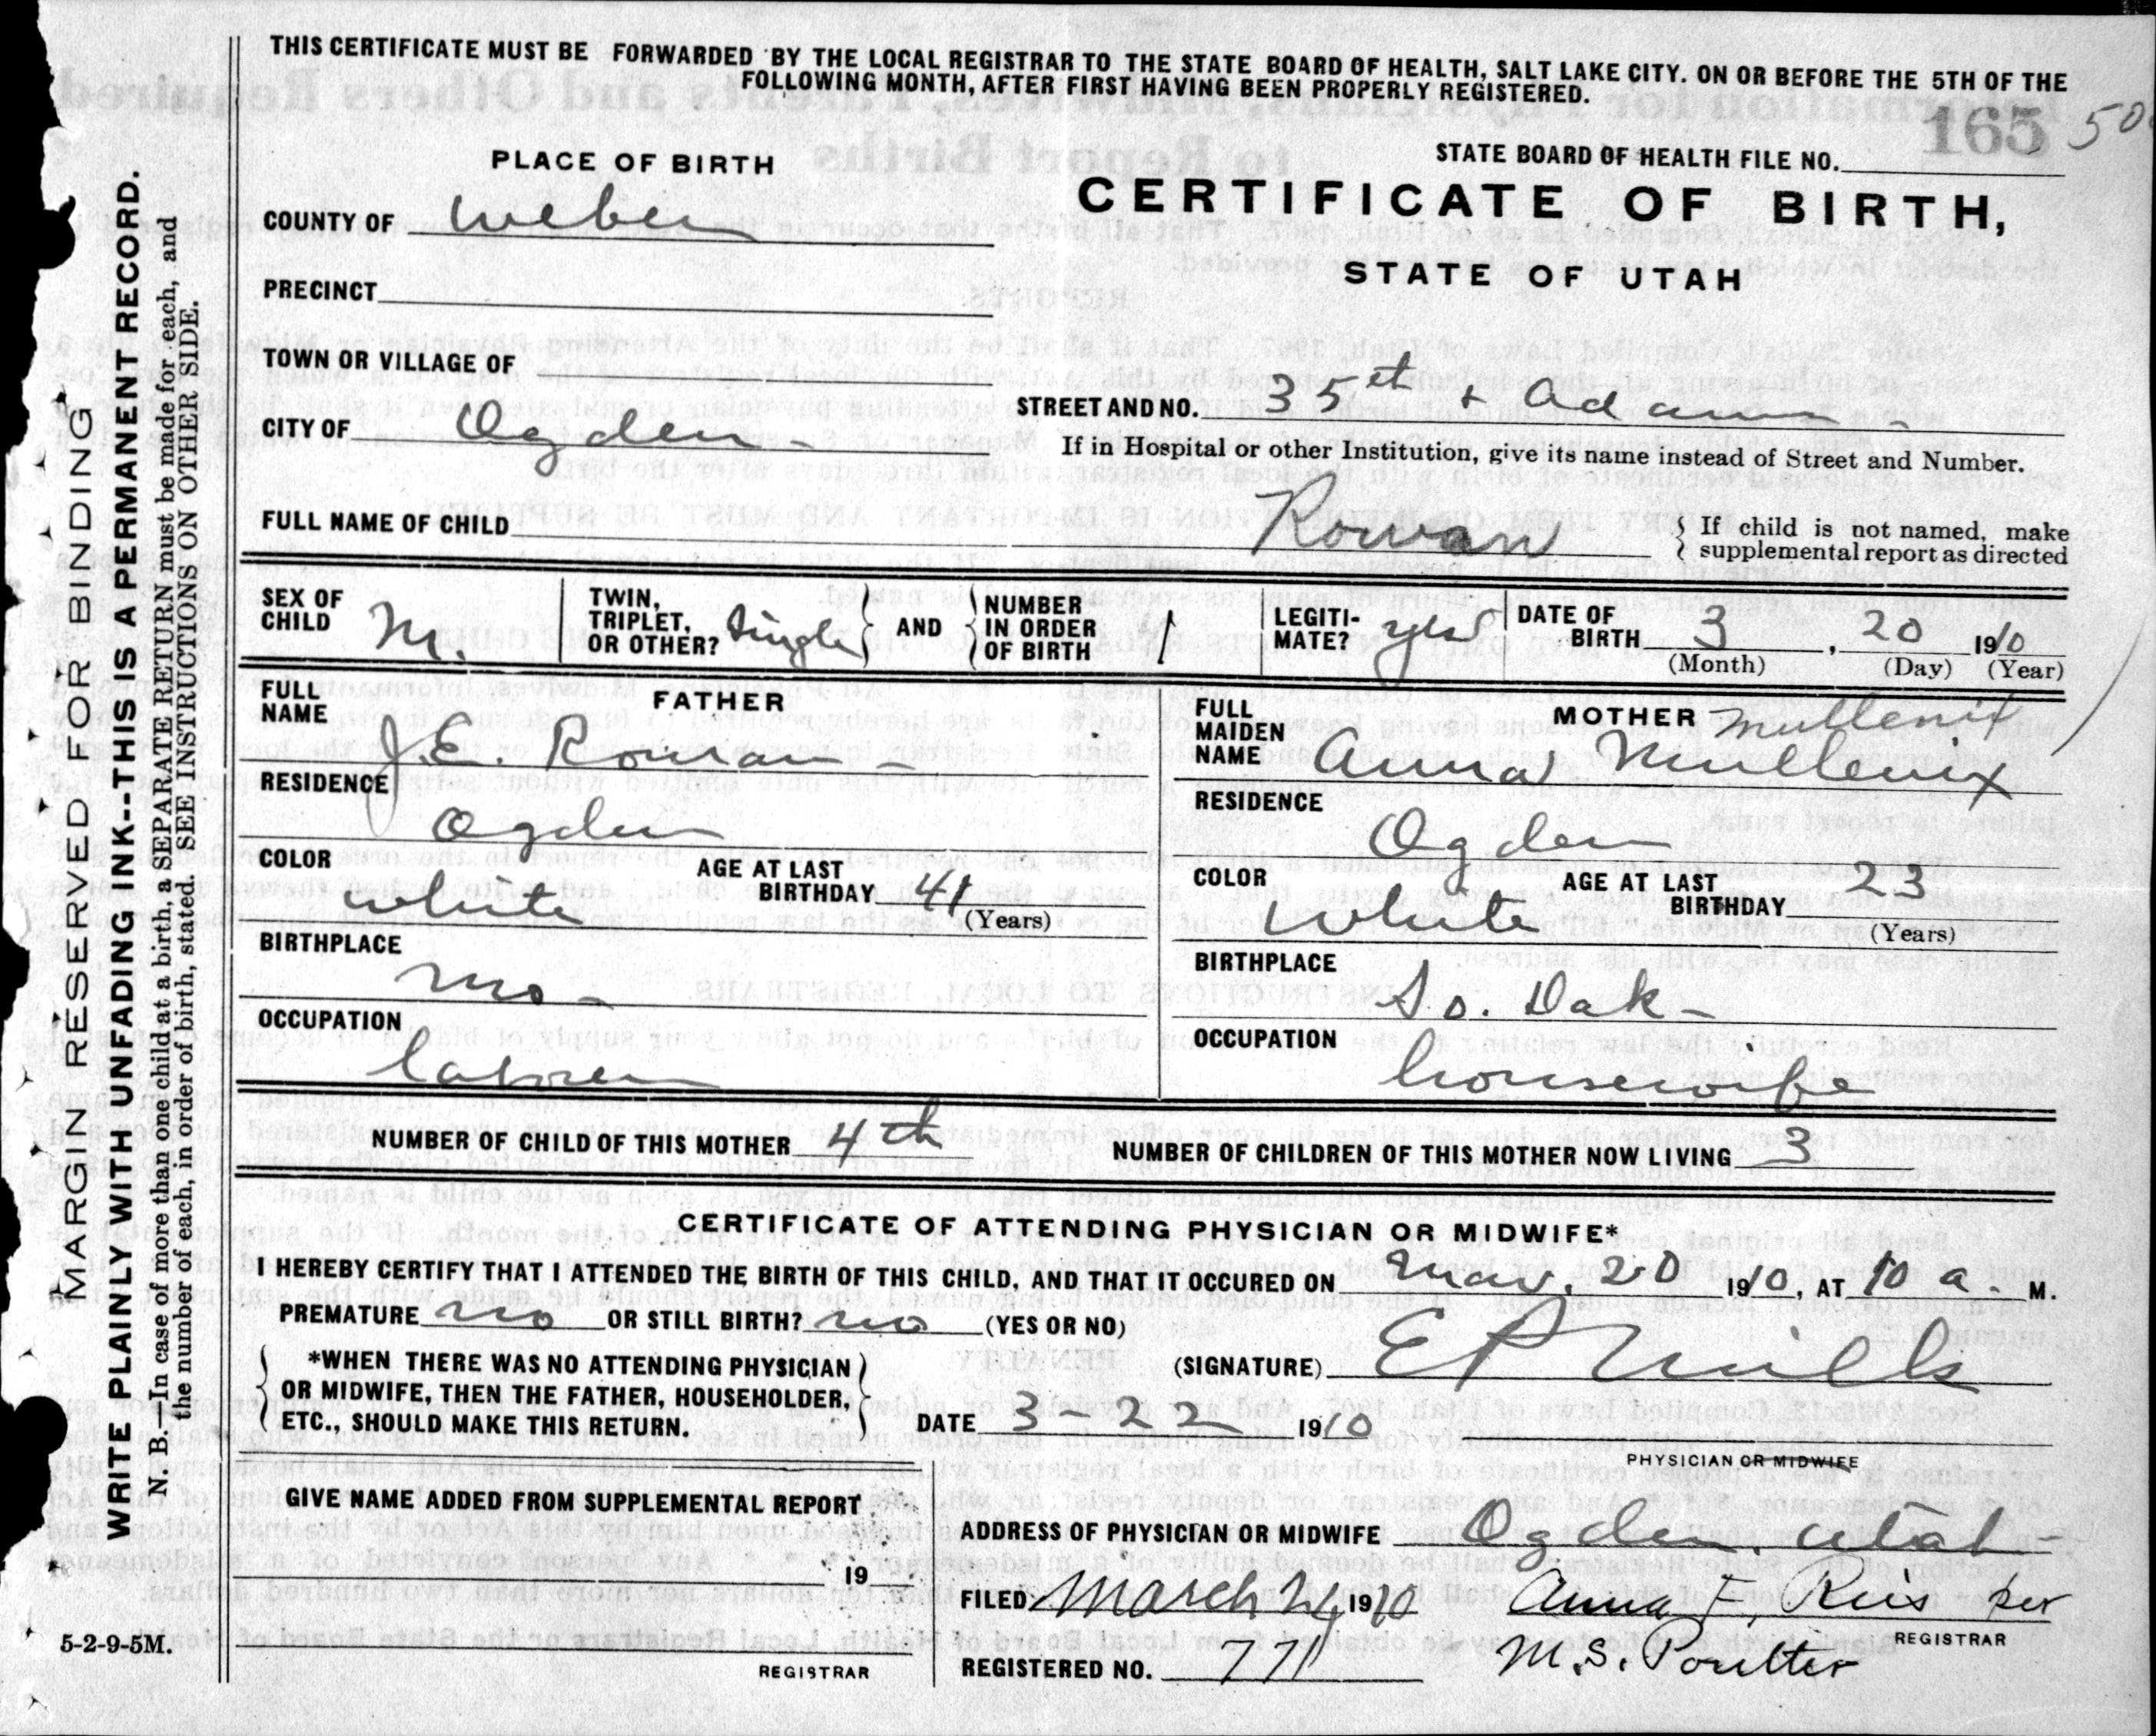 THIS CERTIFICATE MUST BE FORWARDED BY THE LOCAL REGISTRAR TO THE STATE BOARD OF HEALTH, SALT LAKE CITY. ON OR BEFORE THE 5TH OF THE
FOLLOWING MONTH, AFTER FIRST HAVING BEEN PROPERLY REGISTERED.
165 50
STATE BOARD OF HEALTH FILE NO.
PLACE OF BIRTH
CERTIFICATE OF BIRTH,
STATE OF UTAH
COUNTY OF Weber
PRECINCT
TOWN OR VILLAGE OF
CITY OF Ogden
STREET AND NO. 35th + Adams
If in Hospital or other Institution, give its name instead of Street and Number.
FULL NAME OF CHILD Rowan
If child is not named, make
supplemental report as directed
SEX OF CHILD M.
TWIN, TRIPLET, OR OTHER? Single
AND
NUMBER IN ORDER OF BIRTH 1
LEGITI-MATE? yes
DATE OF BIRTH 3, 20 1910
(Month) (Day) (Year)
FATHER
FULL NAME J.E. Rowan
RESIDENCE Ogden
COLOR white
AGE AT LAST BIRTHDAY 41
(Years)
BIRTHPLACE Mo-
OCCUPATION laborer
MOTHER Mullenix
FULL MAIDEN NAME Anna Mullenix
RESIDENCE Ogden
COLOR White
AGE AT LAST BIRTHDAY 23
(Years)
BIRTHPLACE So. Dak-
OCCUPATION housewife
NUMBER OF CHILD OF THIS MOTHER 4th
NUMBER OF CHILDREN OF THIS MOTHER NOW LIVING 3
CERTIFICATE OF ATTENDING PHYSICIAN OR MIDWIFE*
I HEREBY CERTIFY THAT I ATTENDED THE BIRTH OF THIS CHILD, AND THAT IT OCCURED ON Mar, 20 1910, AT 10 a. M.
PREMATURE no OR STILL BIRTH? no (YES OR NO)
*WHEN THERE WAS NO ATTENDING PHYSICIAN
OR MIDWIFE, THEN THE FATHER, HOUSEHOLDER,
ETC., SHOULD MAKE THIS RETURN.
(SIGNATURE) E P Mills
DATE 3-22 1910
PHYSICIAN OR MIDWIFE
GIVE NAME ADDED FROM SUPPLEMENTAL REPORT
19
REGISTRAR
ADDRESS OF PHYSICIAN OR MIDWIFE Ogden. Utah-
FILED March 24 1910 Anna F. Reis per
REGISTRAR
REGISTERED NO. 77 M.S. Poulter
5-2-9-5M.
MARGIN RESERVED FOR BINDING
WRITE PLAINLY WITH UNFADING INK--THIS IS A PERMANENT RECORD.
N. B.—In case of more than one child at a birth, a SEPARATE RETURN must be made for each, and
the number of each, in order of birth, stated. SEE INSTRUCTIONS ON OTHER SIDE.